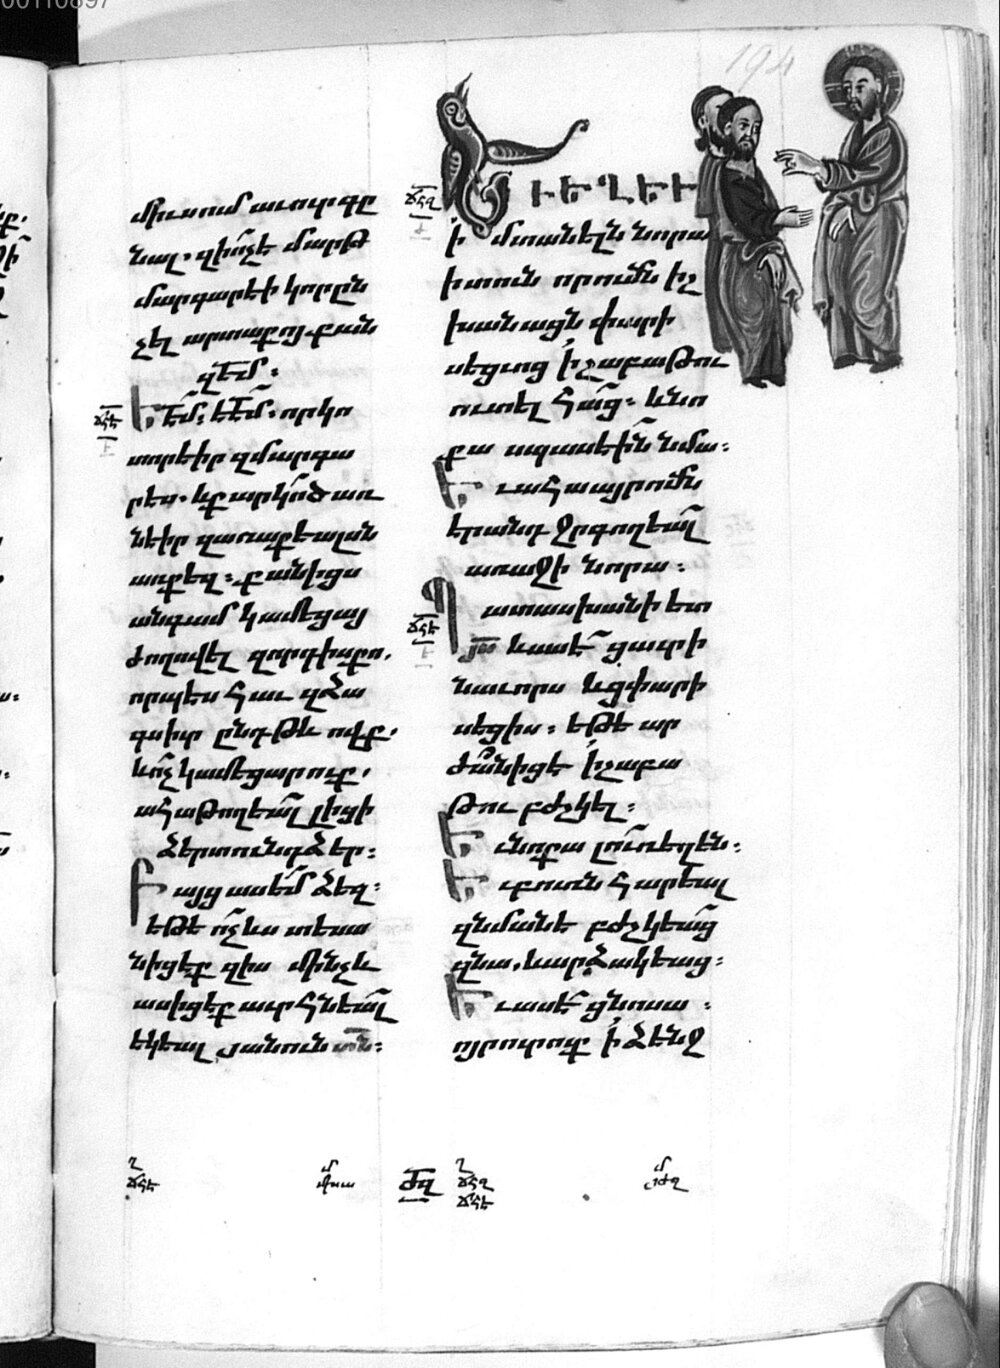 միւսում աւուրգը
նալ. զիո՛չէ մարթ
մարգարէի կորըն
չել արտաքոյ քան
զԵմ:
Եմ. եԵմ. որկո
տորէիր զմարգա
րես. և քարկոծ առ
նէիր զառաքեալսն
առքեզ: քանիցս
անգամ կամեցայ
ժողովել զորդիսքո.
որպես հաւ զձա
գսիւր ընդ թև ովք.
և ո՛չ կամեցարուք.
ահա թողեալ լիցի
ձեր տունդ ձեր:
Բայց ասեմ ձեզ:
եթէ ո՛չ ևս տեսա
նիցէք զիս մինչև
ասիցէք աւրհնեալ
եկեալ յանուն տն:
ՃՀԵ
194
ՃՀԶ
Եւ ԵՂԵՒ
ի մտանելն նորա
ի տուն որումն իշ
խանացն փարի
սեցւոց ի շաբաթու
ուտել հաց: և նո
քա սպասէին նմա:
Եւ ահա այրումն
էր անդ ջրգողեալ
առաջի նորա:
Պատասխանի ետ
յս և ասէ ցաւրի
նաւորս և ցփարի
սեցիս: եթէ ար
ժանիցէ ի շաբա
թու բժշկել:
Եւ նոքա լուռ եղեն:
Եւ բուռն հարեալ
զնմանէ բժշկեաց
զնա. և արձակեաց:
Եւ ասէ ցնոսա:
ոյր ուրուք ի ձէնջ
ՃՀԷ
ՃՀԵ
ԺԶ
ՃՀԶ
ՃՀԷ